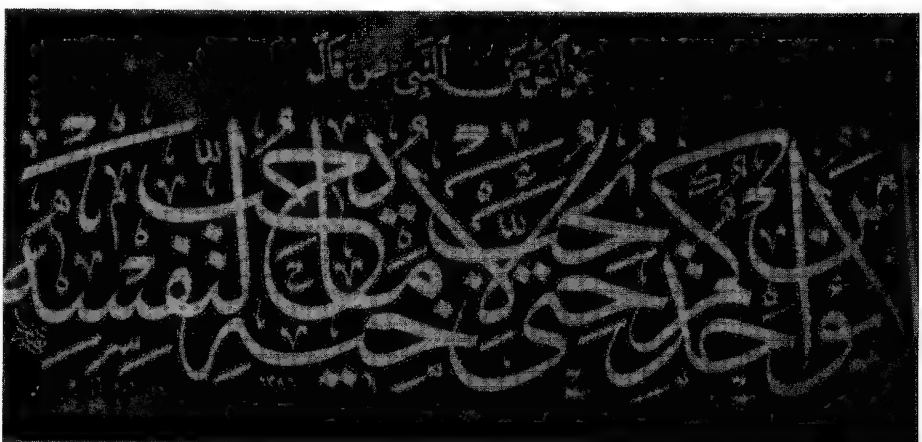 عن أنس عن النبي ص قال
لا يؤمن أحدكم حتى يحب لأخيه ما يحب لنفسه